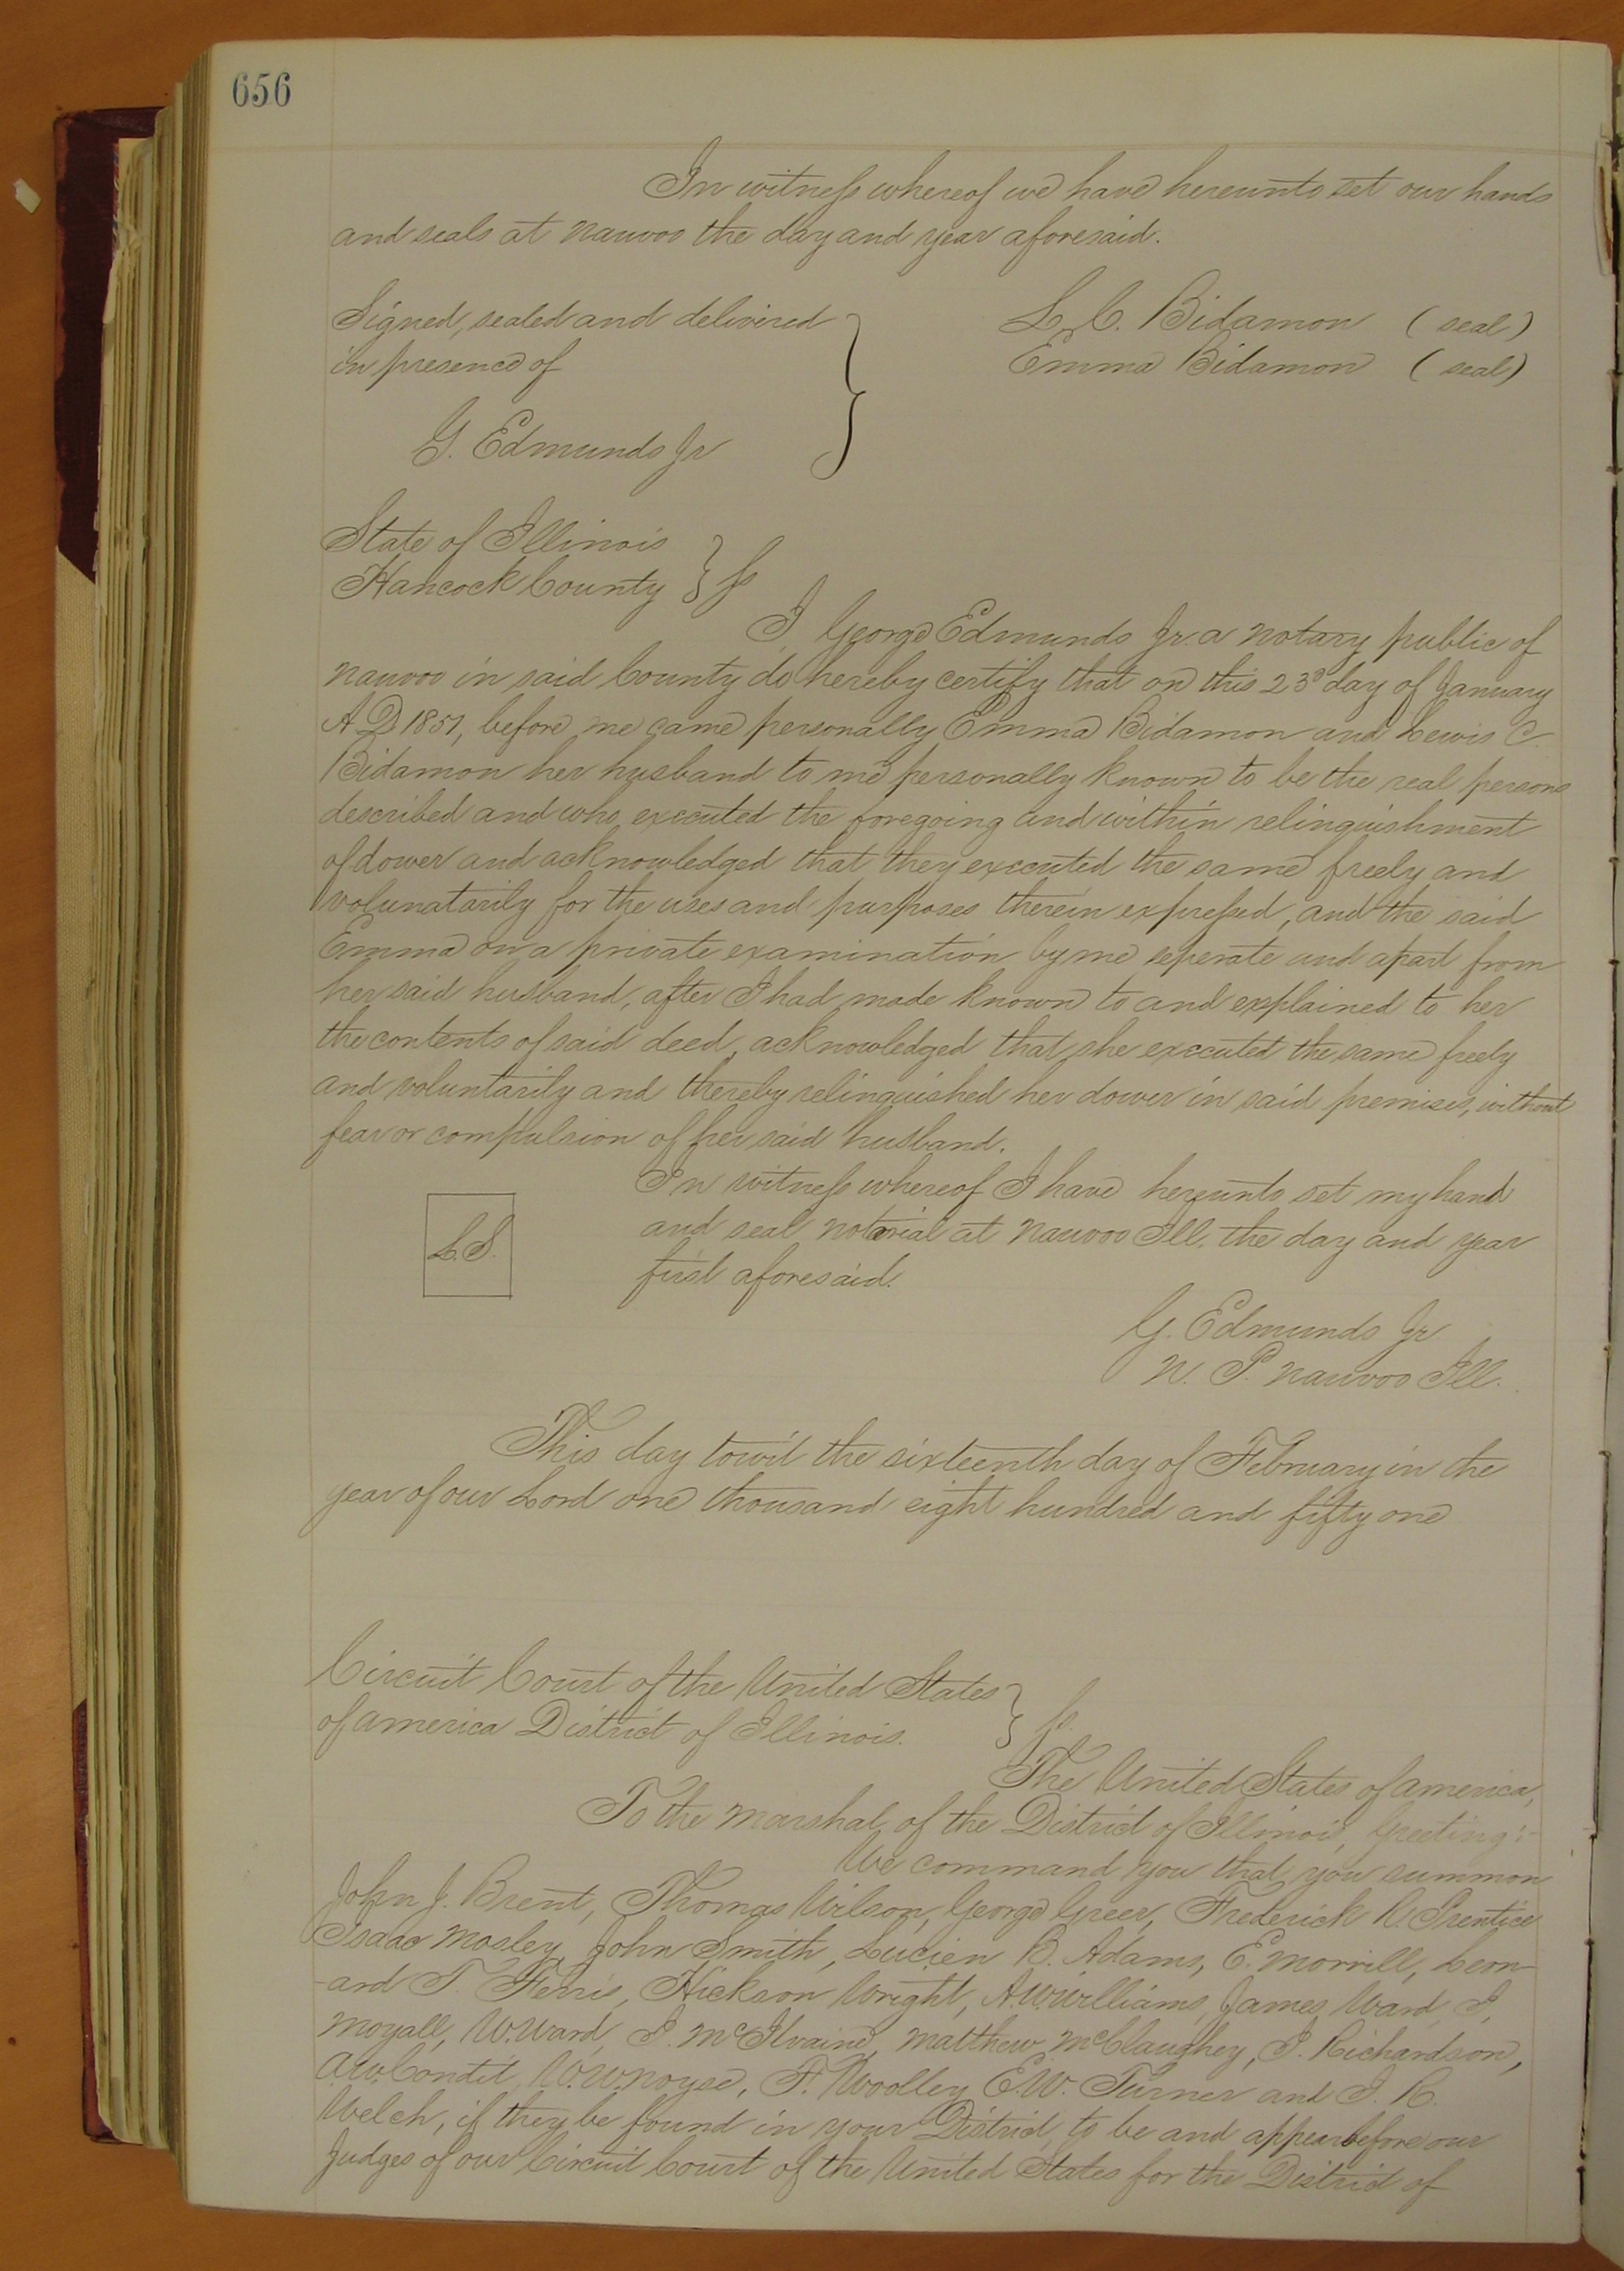 656
In witness whereof we have hereunto set our hands
and seals at Nauvoo the day and year aforesaid.
Signed, sealed and delivered
in presence of
G. Edmunds Jr
L. C. Bidamon (seal)
Emma Bidamon (seal)
State of Illinois
Hancock County } ss
I George Edmunds Jr. a notary public of
Nauvoo in said County do hereby certify that on this 23d day of January
A.D 1851, before me came personally Emma Bidamon and Lewis C.
Bidamon her husband to me personally known to be the real persons
described and who executed the foregoing and within relinquishment
of dower and acknowledged that they executed the same freely and
volunatarily for the uses and purposes therein expressed, and the said
Emma on a private examination by me seperate and apart from
her said husband, after I had made known to and explained to her
the contents of said deed, acknowledged that she executed the same freely
and voluntarily and thereby relinquished her dower in said premises, without
fear or compulsion of her said husband.
In witness whereof I have hereunto set my hand
and seal notarial at Nauvoo Ill. the day and year
first aforesaid.
L.S.
G. Edmunds Jr
N. P. Nauvoo Ill.
This day towit the sixteenth day of February in the
year of our Lord one thousand eight hundred and fifty one
Circuit Court of the United States
of America District of Illinois. } ss.
The United States of America,
To the Marshal of the District of Illinois, Greeting:-
We command you that you summon
John J. Brent, Thomas Wilson, George Greer, Frederick R. Prentice
Isaac Mosley, John Smith, Lucien B. Adams, E. Morrill, Leon-
-ard T. Ferris, Hickson Wright, A.W. Williams, James Ward, I,
Moyall, W. Ward, I. McIlvaine, Matthew McClaughey, I. Richardson,
A.W. Condit, W.W. Noyse, F. Woolley, E.W. Turner and I. R.
Welch, if they be found in your District, to be and appear before our
Judges of our Circuit Court of the United States for the District of